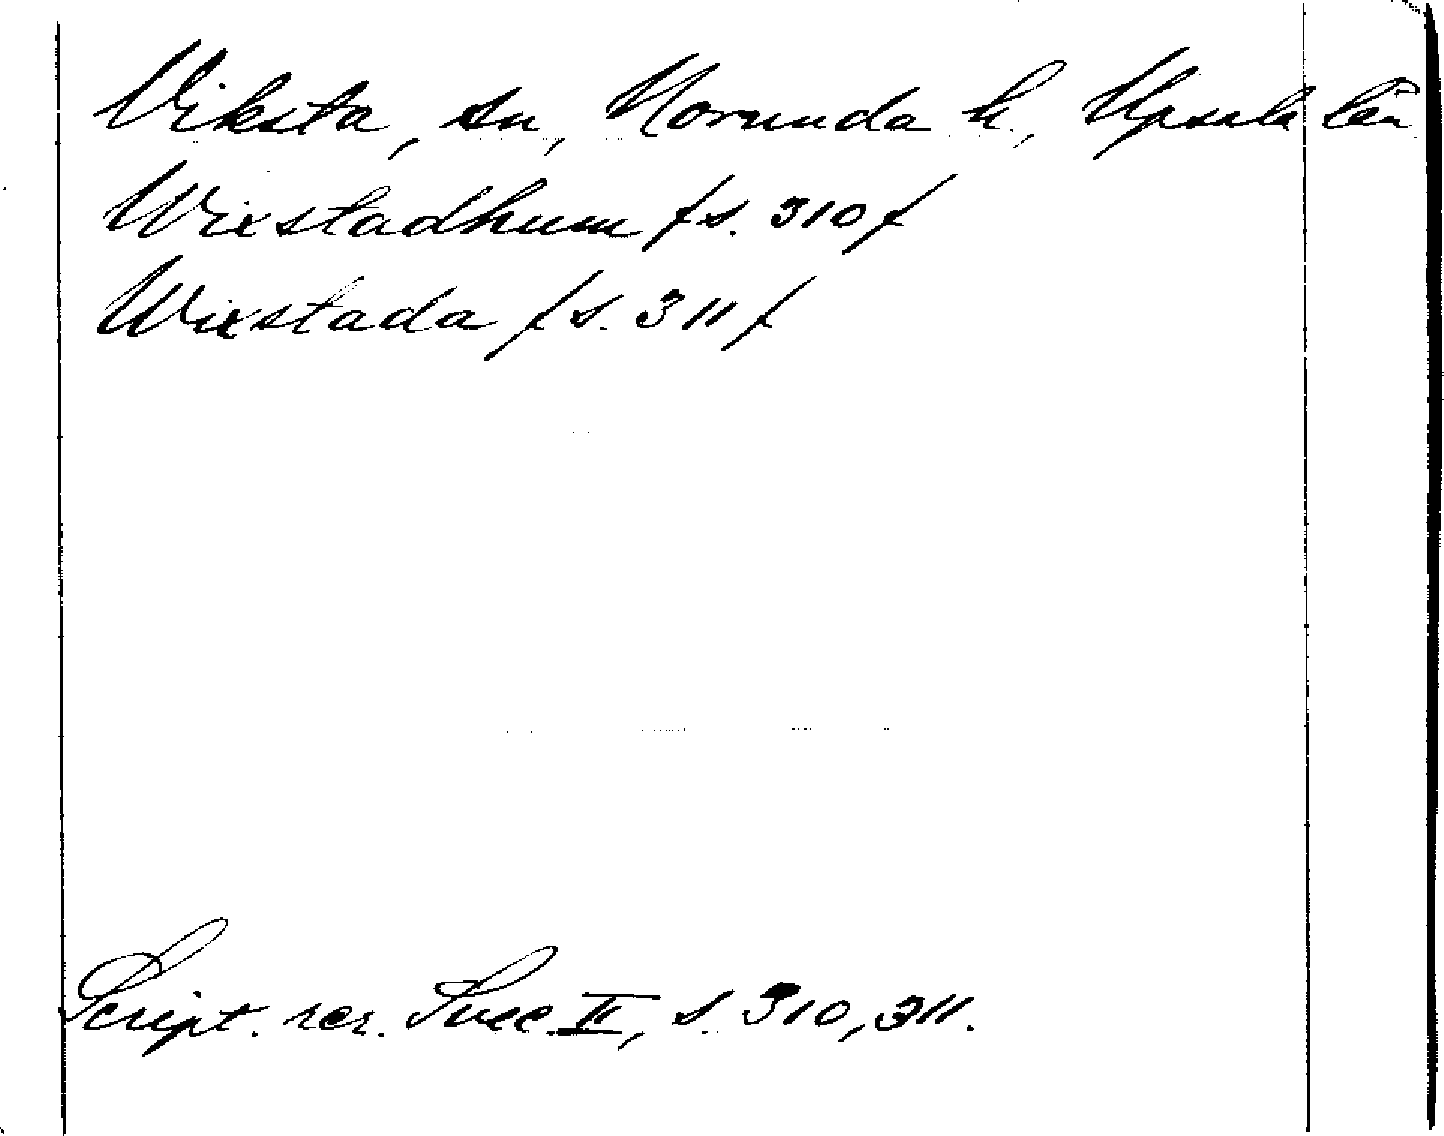 Viksta, sn, Norunda h., Upsala län
Wixstadhum /s. 310/
Wixstada /s. 311/
Script. rer. Svec. II, s. 310, 311.